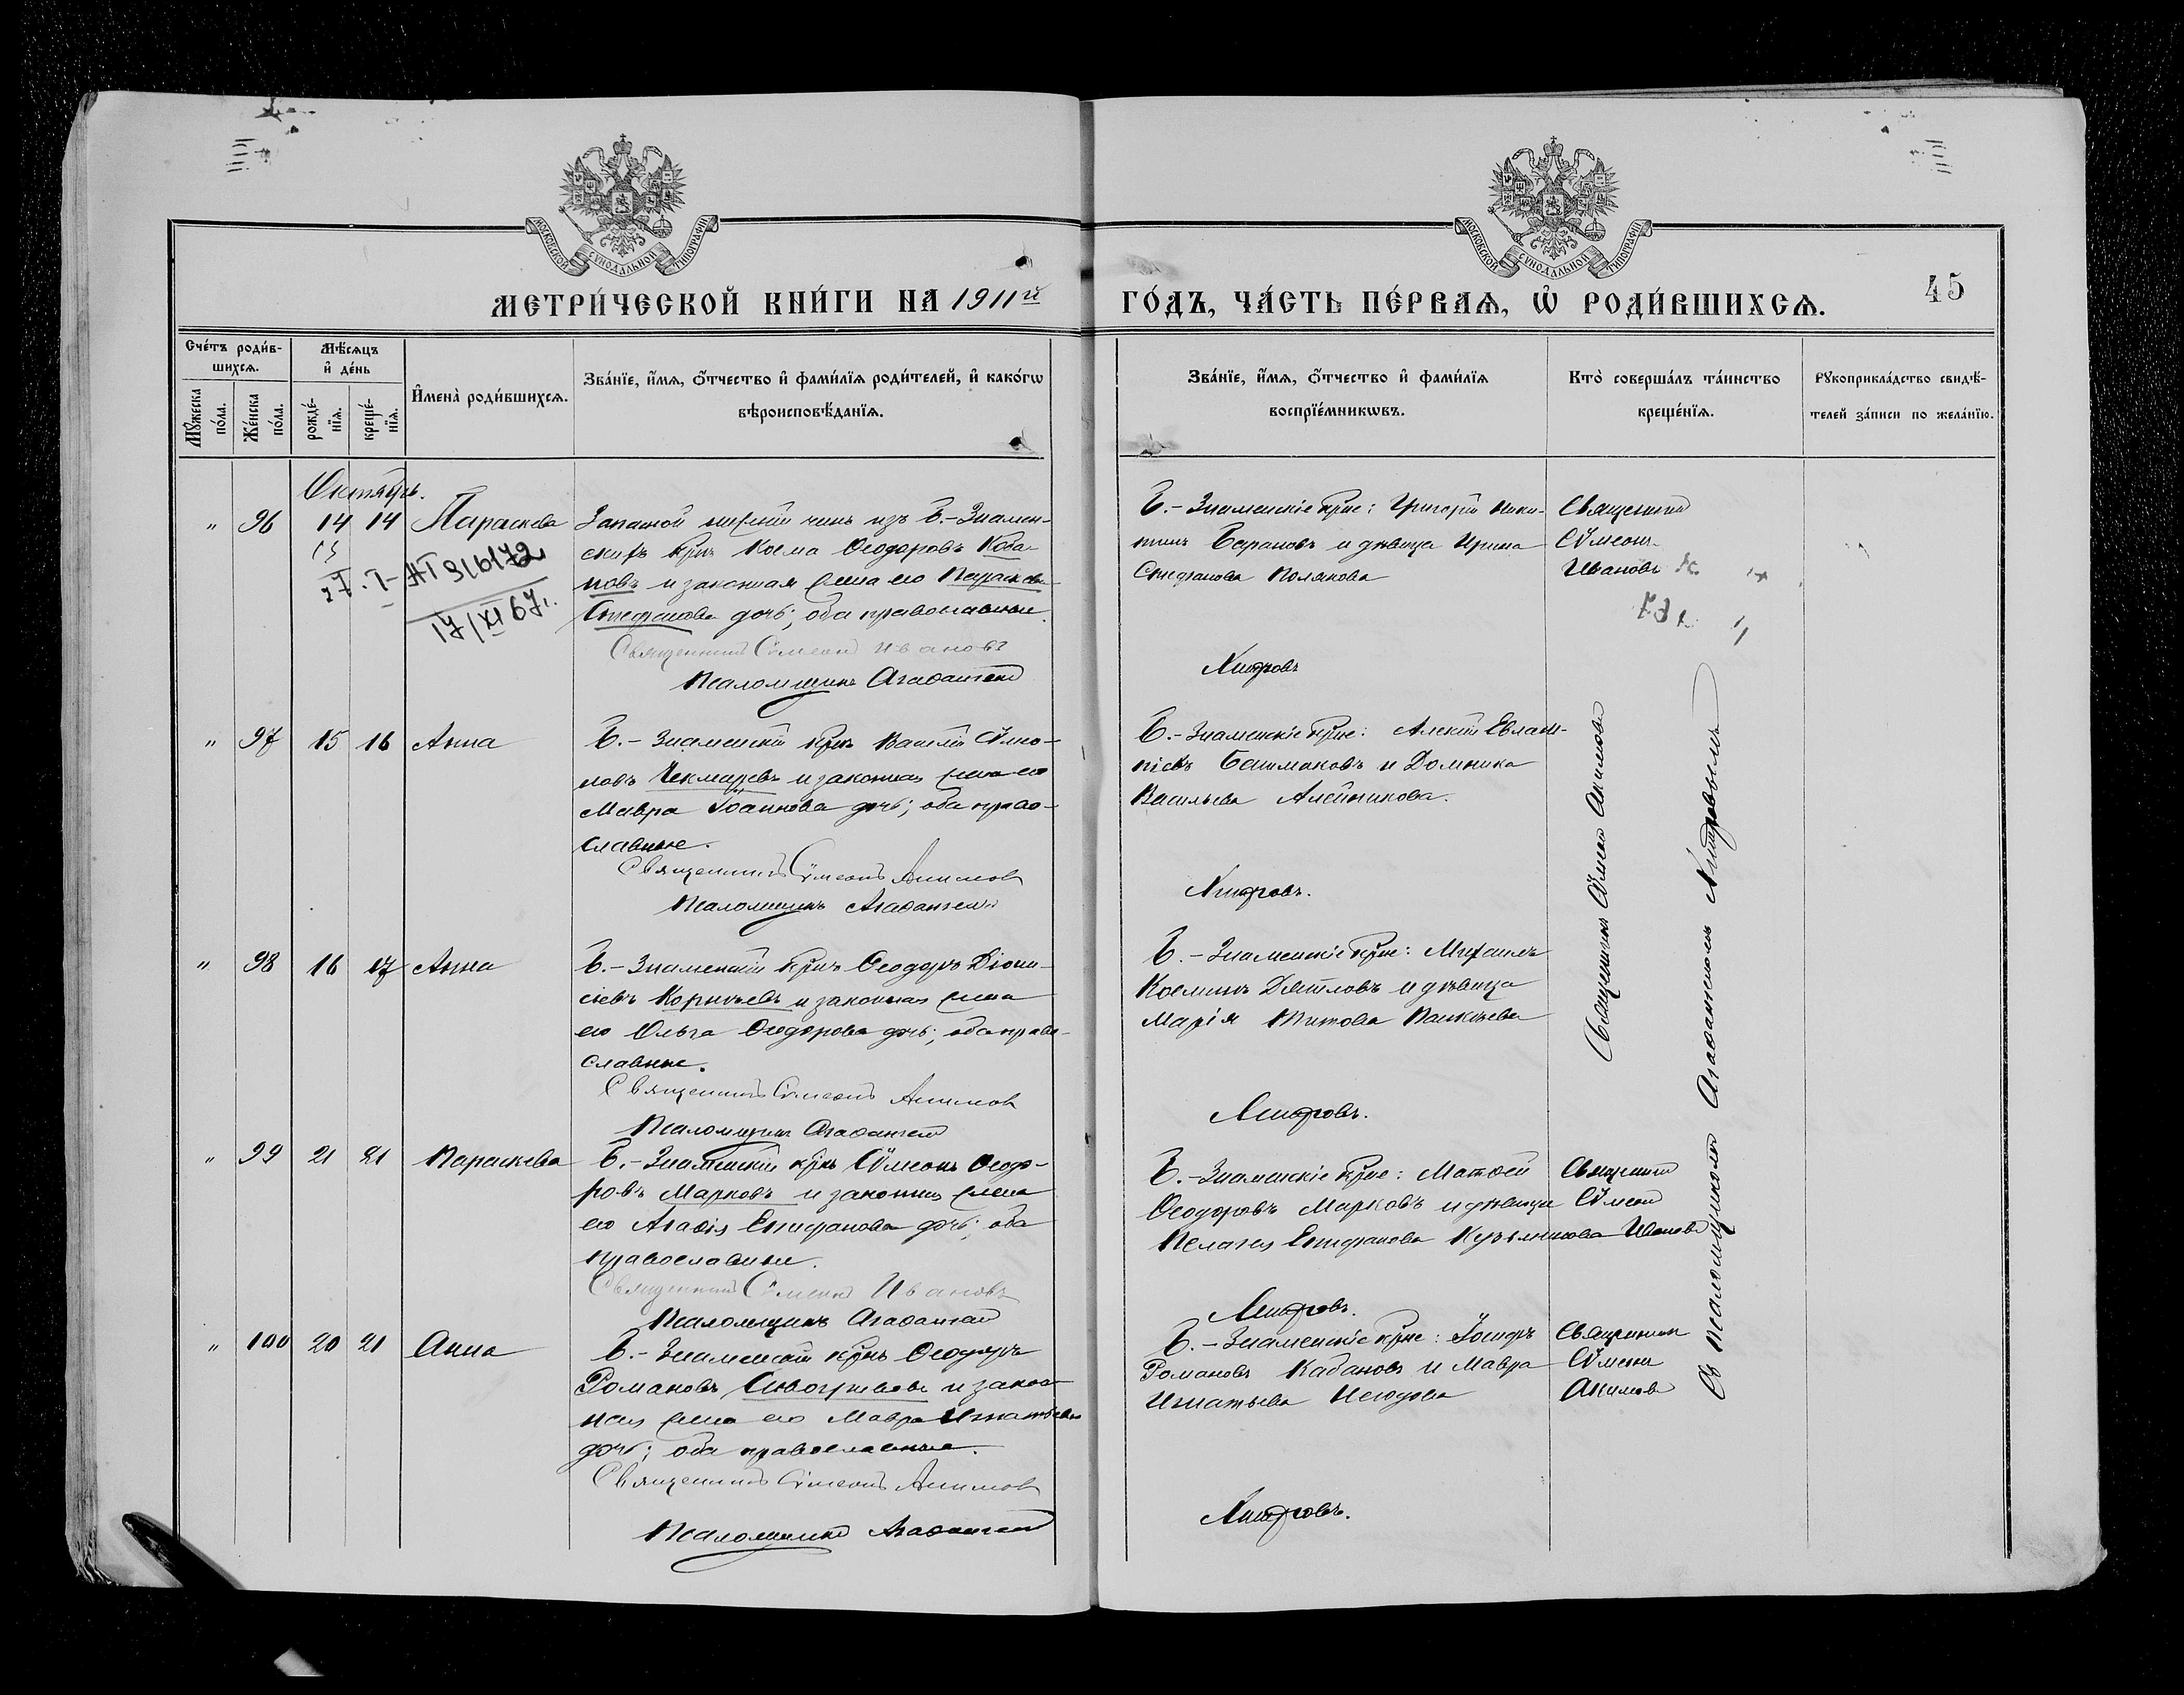 МОСКОВСКОЙ СѴНОДАЛЬНОЙ ТИПОГРАФІИ
МОСКОВСКОЙ СѴНОДАЛЬНОЙ ТИПОГРАФІИ
МЕТРИ́ЧЕСКОЙ КНИ́ГИ НА 1911й
ГО́ДЪ, ЧА́СТЬ ПЕ́РВАѦ, Ѡ҆ РОДИ́ВШИХСѦ.
45
Сче́тъ роди́в-
шихсѧ.
Мѣ́сѧцъ
и҆ де́нь
И҆мена̀ роди́вшихсѧ.
Зва́нїе, и҆́мѧ, ѻ҆́тчество и҆ фами́лїѧ роди́телей, и҆ како́гѡ
вѣроисповѣ́данїѧ.
Мꙋ́жеска по́ла.
Же́нска по́ла.
рожде́-
нїѧ.
креще́-
нїѧ.
Зва́нїе, и҆́мѧ, ѻ҆́тчество и҆ фами́лїѧ
воспрїе́мникѡвъ.
Кто̀ соверша́лъ та́инство
креще́нїѧ.
Рꙋкоприкла́дство свидѣ́-
телей за́писи по жела́нїю.
Октябрь.
" 96 14 14 Параскева
Запасной нисшій чинъ изъ Б.-Знамен-
скихъ крн. Косма Ѳеодоровъ Коба-
новъ и законная жена его Параскева
Стефанова дочь; оба православные.
Священникъ Сѵмеонъ Ивановъ
Псаломщикъ Агаѳангелъ
Б.-Знаменскіе крне: Григорій Ники-
тинъ Барановъ и дѣвица Ирина
Стефанова Полякова
Священникъ
Сѵмеонъ
Ивановъ
17/XI 67г.
" 97 15 16 Анна
Б.-Знаменскій крнъ Василій Сѵмео-
новъ Чекмаревъ и законная жена его
Мавра Іоаннова дочь; оба право-
славные.
Священникъ Сѵмеонъ Акимовъ
Псаломщикъ Агаѳангелъ
Б.-Знаменскіе крне: Алексій Евлам-
піевъ Башмаковъ и Домника
Васильева Алейникова.
" 98 16 17 Анна
Б.-Знаменскій крнъ Ѳеодоръ Діони-
сіевъ Корнѣевъ и законная жена
его Ольга Ѳеодорова дочь; оба право-
славные.
Священникъ Сѵмеонъ Акимовъ
Псаломщикъ Агаѳангелъ
Б.-Знаменскіе крне: Михаилъ
Косминъ Дятловъ и дѣвица
Марія Титова
Священникъ Сѵмеонъ Акимовъ
Съ псаломщикомъ Агаѳангеломъ
" 99 21 21 Параскева
Б.-Знаменскій крнъ Сѵмеонъ Ѳеодо-
ровъ Марковъ и законная жена
его Агаѳія Епифанова дочь; оба
православные.
Священникъ Сѵмеонъ Ивановъ
Псаломщикъ Агаѳангелъ
Б.-Знаменскіе крне: Матѳей
Ѳеодоровъ Марковъ и дѣвица
Пелагея Епифанова
Священникъ
Сѵмеонъ
Ивановъ
" 100 20 21 Анна
Б.-Знаменскій крнъ Ѳеодоръ
Романовъ и закон-
ная жена его Мавра Игнатьева
дочь; оба православные.
Священникъ Сѵмеонъ Акимовъ
Псаломщикъ Агаѳангелъ
Б.-Знаменскіе крне: Іосифъ
Романовъ Кабановъ и Мавра
Игнатьева
Священникъ
Сѵмеонъ
Акимовъ